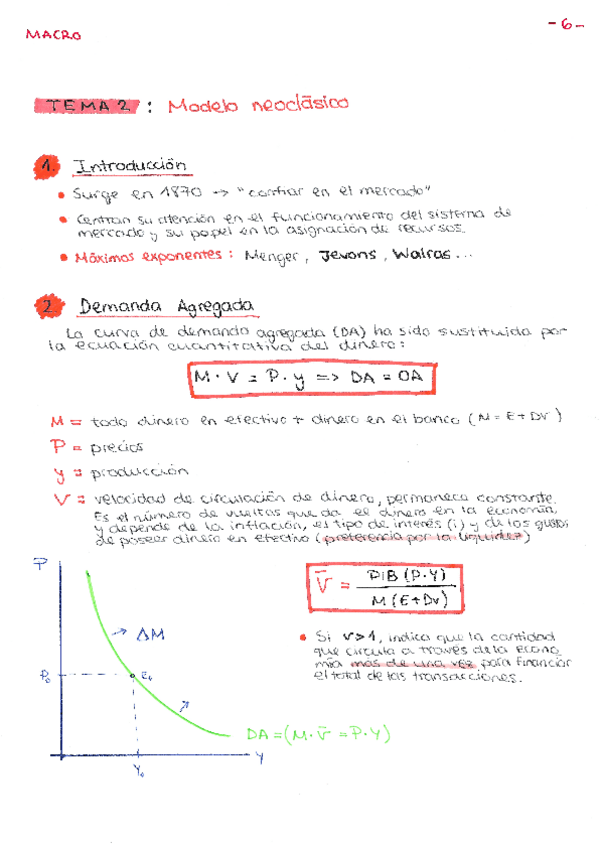 MACRO
-6-
TEMA 2 : Modelo neoclásico
1. Introducción
• Surge en 1870 → "confiar en el mercado"
• Centran su atención en el funcionamiento del sistema de
mercado y su papel en la asignación de recursos.
• Máximos exponentes : Menger, Jevons, Walras...
2. Demanda Agregada
La curva de demanda agregada (DA) ha sido sustituida por
la ecuación cuantitativa del dinero:
M · V = P · y => DA = OA
M = todo dinero en efectivo + dinero en el banco (M = E + Dv)
P = precios
y = producción
V = velocidad de circulación de dinero, permanece constante.
Es el número de vueltas que da el dinero en la economía,
y depende de la inflación, el tipo de interés (i) y de los gustos
de poseer dinero en efectivo (preferencia por la liquidez)
P
→ ΔM
P₀
E₀
Y₀
Y
DA = (M · V̄ = P · Y)
V̄ = PIB (P·Y)
M (E+Dv)
• Si V>1, indica que la cantidad
que circula a través de la econo
mía más de una vez para financiar
el total de las transacciones.